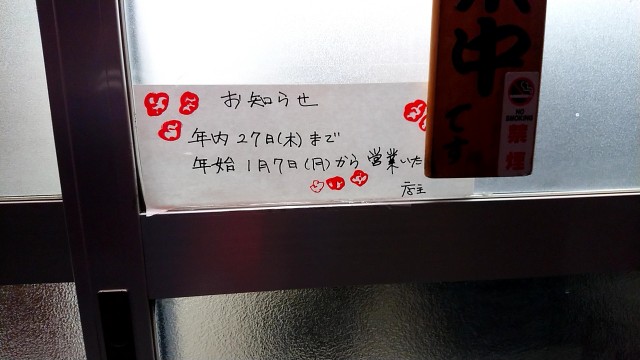 お知らせ
年内27日(木)まで
年始1月7日(月)から営業いた
店主
中です。
NO SMOKING
禁煙